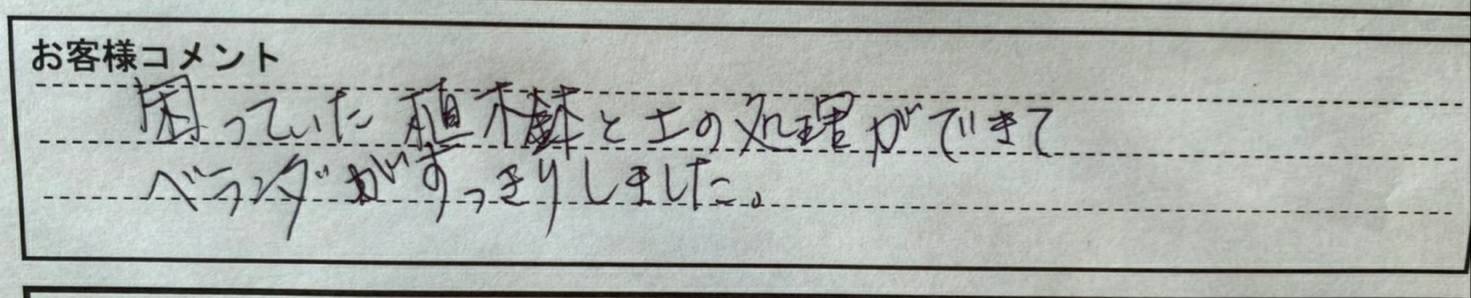 お客様コメント
困っていた植木鉢と土の処理ができて
ベランダがすっきりしました。